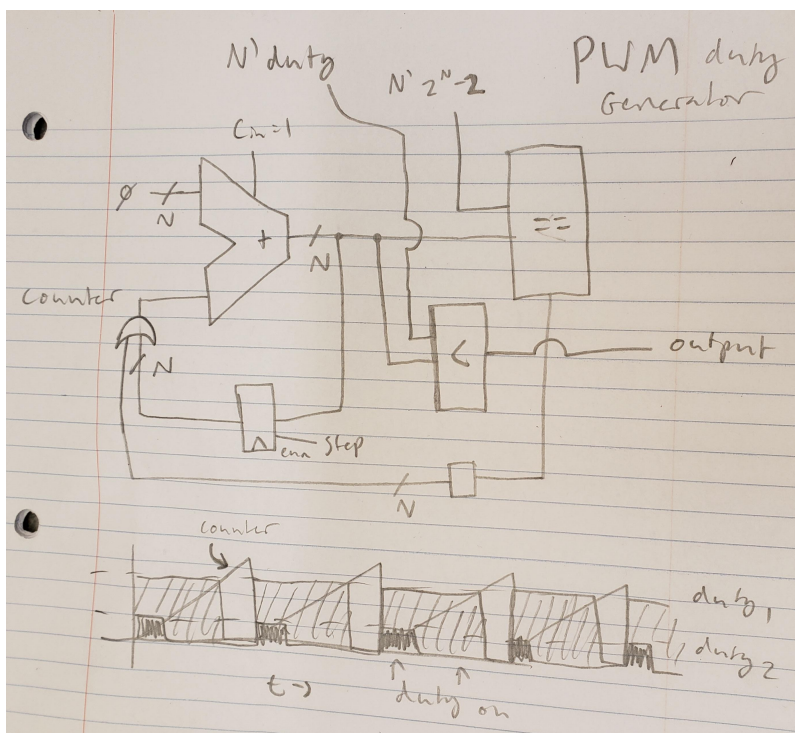 PWM duty
Generator
N' duty
N' 2^N-2
Cin=1
∅
N
+
N
==
counter
N
<
output
enn
step
N
counter
duty1
duty2
t→
duty on